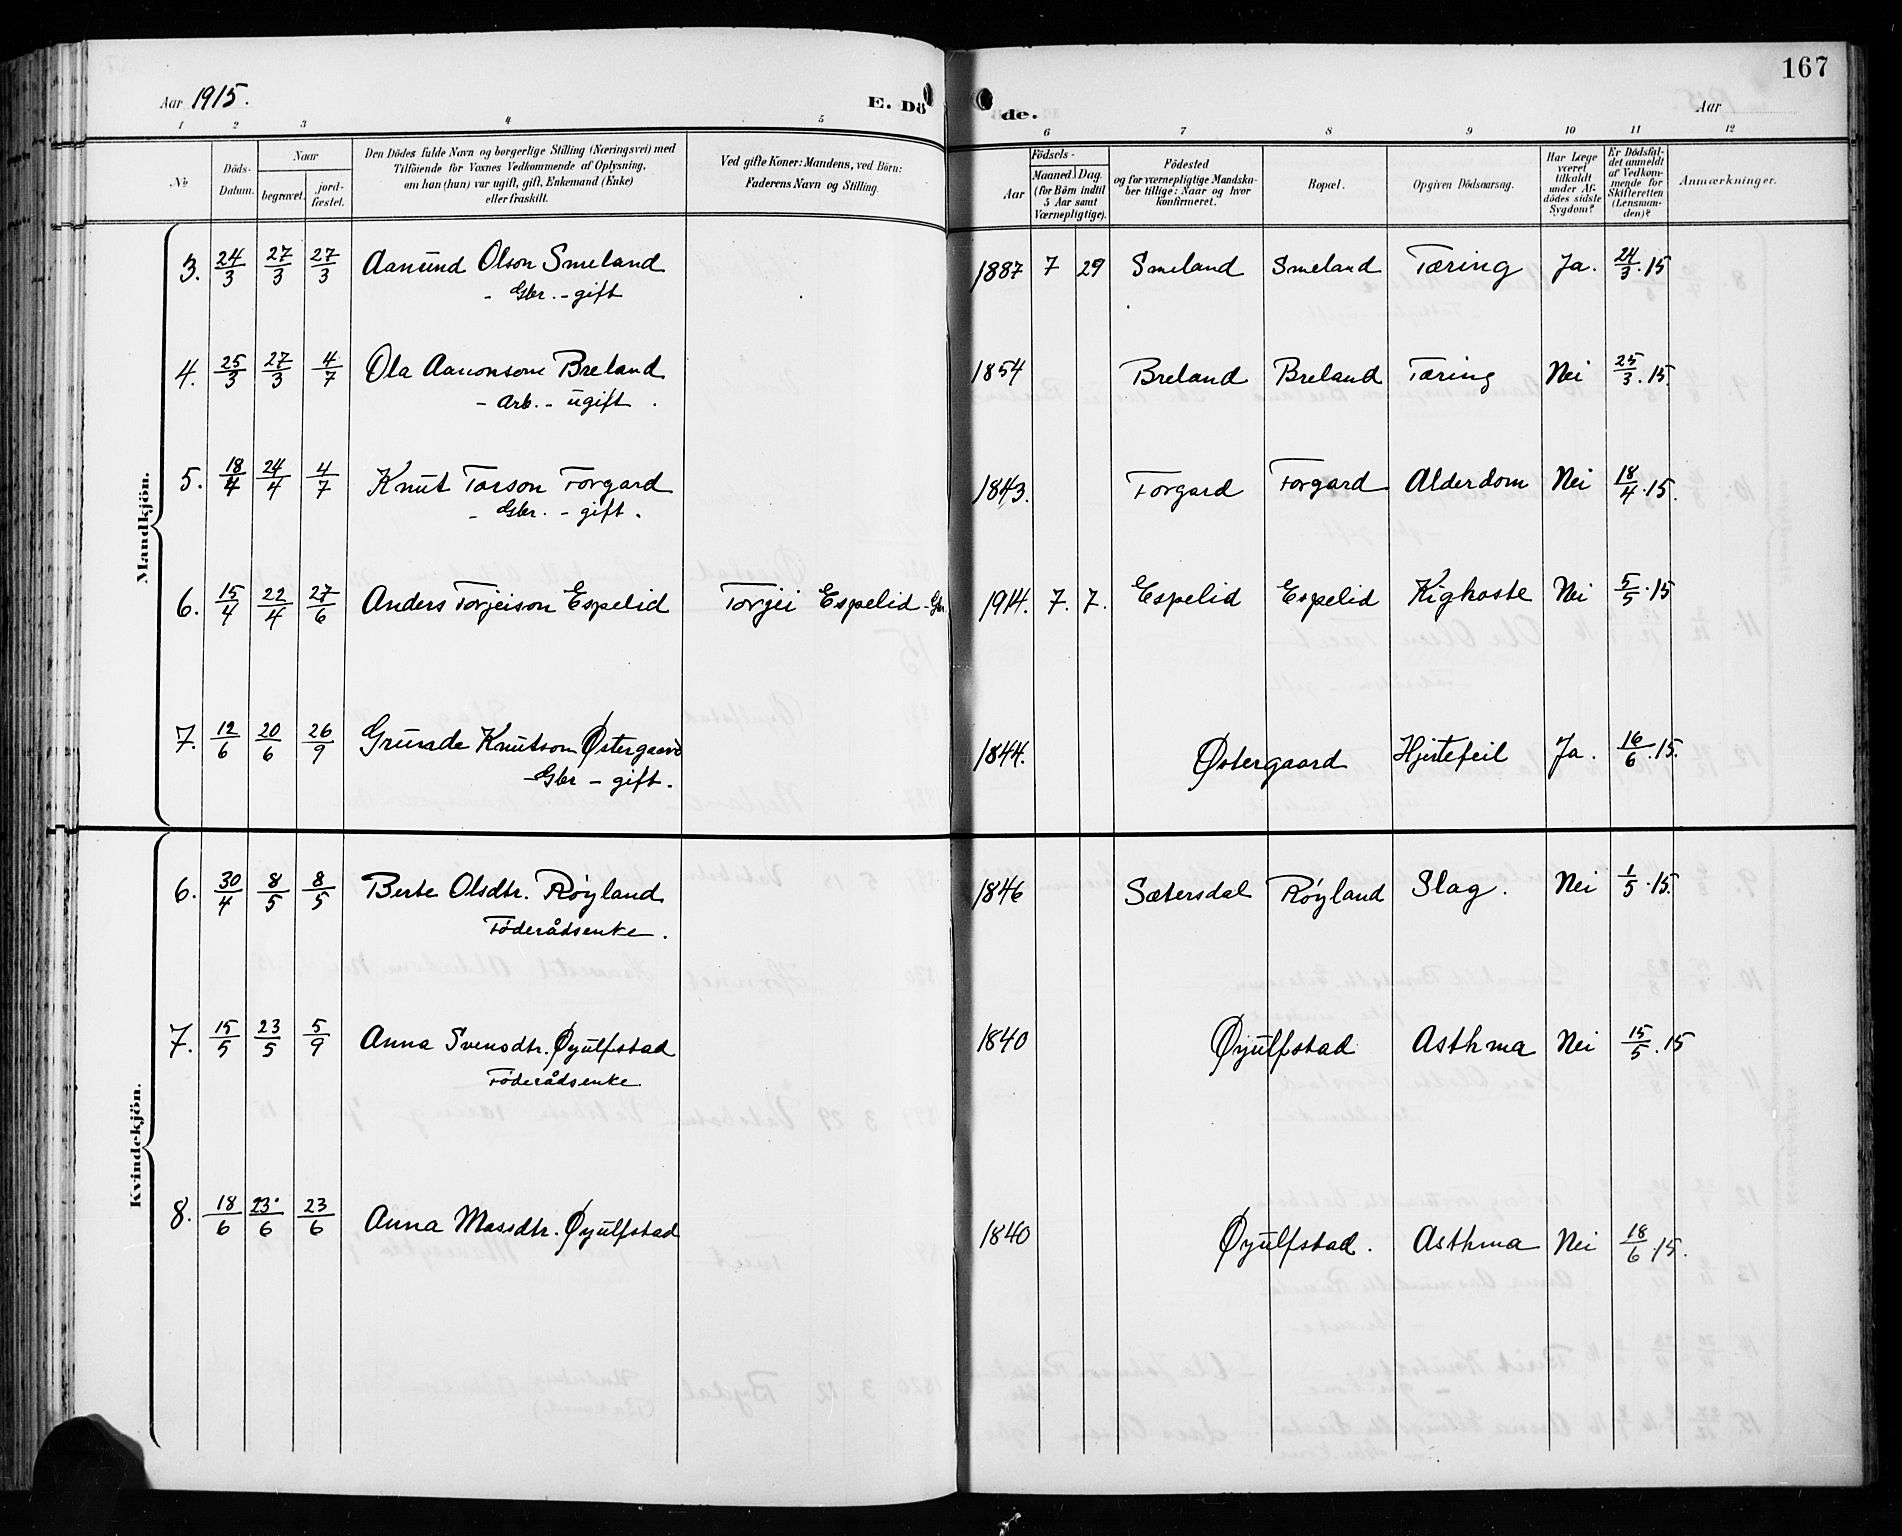 167
Aar 1915.
E. Dö
de.
Aar
1 2 3 4 5 6 7 8 9 10 11 12
No
Döds-Datum.
Naar
begravet.
jord-fæstet.
Den Dödes fulde Navn og borgerlige Stilling (Næringsvei) med
Tilföiende for Voxnes Vedkommende af Oplysning,
om han (hun) var ugift, gift, Enkemand (Enke)
eller fraskilt.
Ved gifte Koner: Mandens, ved Börn:
Faderens Navn og Stilling.
Födsels-
Aar
Maaned Dag.
(for Börn indtil
5 Aar samt
Værnepligtige).
Födested
og for værnepligtige Mandska-
ber tillige: Naar og hvor
konfirmeret.
Bopæl.
Opgiven Dödsaarsag.
Har Læge
været
tilkaldt
under Af-
dödes sidste
Sygdom?
Er Dödsfal-
det anmeldt
af Vedkom-
mende for
Skifteretten
(Lensman-
den)?
Anmærkninger.
Mandkjön.
3. 24/3 27/3 27/3 Aanund Olson Smeland 1887 7 29 Smeland Smeland Tæring Ja. 24/3.15
- Gbr. - gift
4. 25/3 27/3 4/7 Ola Aanonsson Breland 1854 Breland Breland Tæring Nei 25/3.15.
- Arb. - ugift .
5. 18/4 24/4 4/7 Knut Tarson Forgard 1843. Forgard Forgard Alderdom Nei 18/4.15.
- Gbr. - gift.
6. 15/4 22/4 27/6 Anders Torjeison Espelid Torjei Espelid - Gbr. 1914. 7. 7. Espelid Espelid Kighoste Nei 5/5.15
7. 12/6 20/6 26/9 Grunde Knutson Østergaard 1844. Østergaard Hjertefeil Ja. 16/6.15.
- Gbr - gift.
Kvindekjön.
6. 30/4 8/5 8/5 Berte Olsdtr. Røyland 1846 Sætersdal Røyland Slag. Nei 1/5.15.
Føderådsenke.
7. 15/5 23/5 5/9 Anna Svensdtr. Øyulfstad 1840 Øyulfstad Asthma Nei 15/5.15
Føderådsenke
8. 18/6 23/6 23/6 Anna Massdtr. Øyulfstad 1840 Øyulfstad. Asthma Nei 18/6.15.